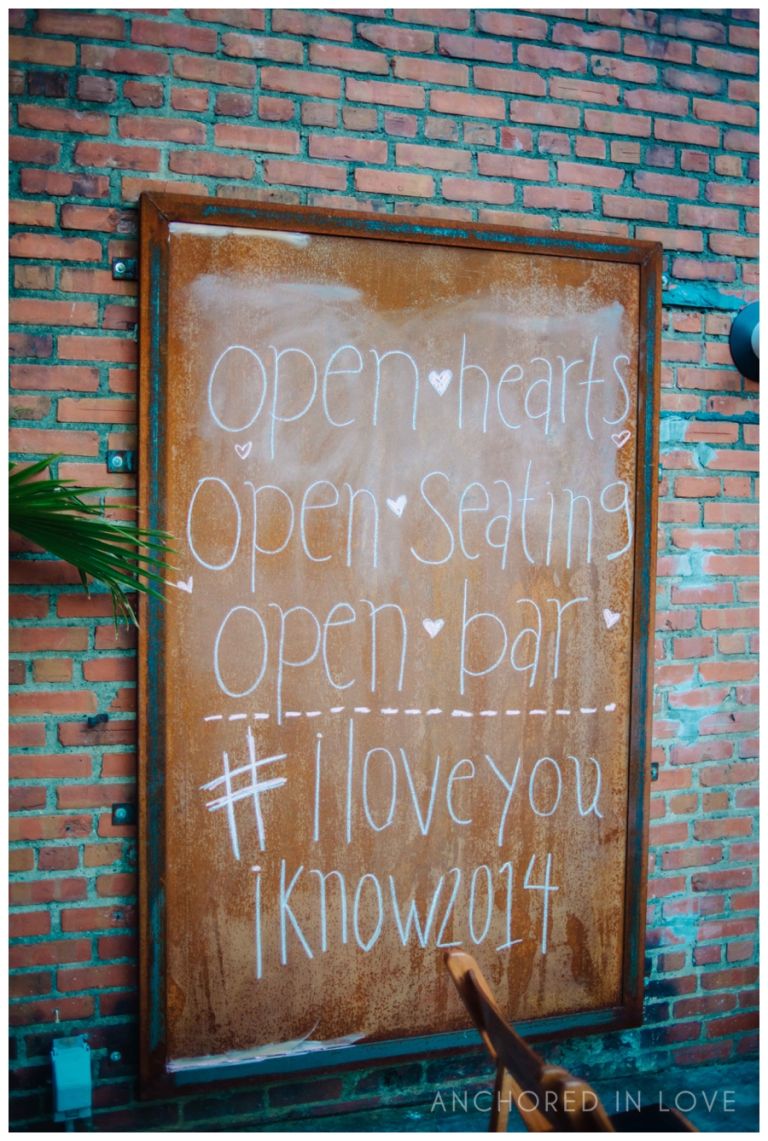 open hearts
open seating
open bar
#iloveyou
iknow2014
ANCHORED IN LOVE